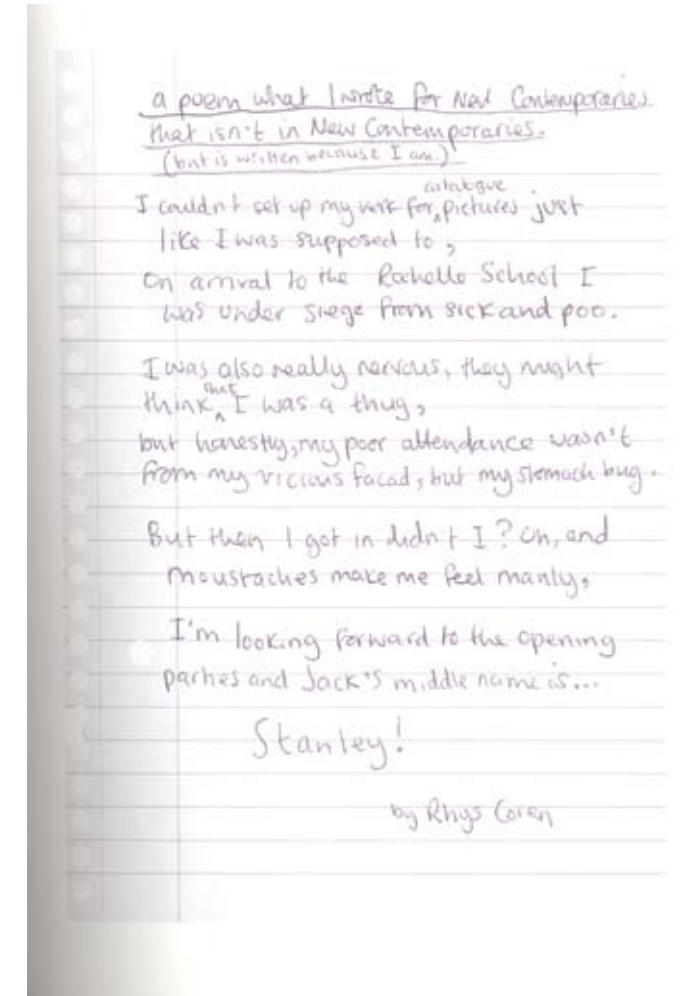 a poem what I wrote for New Contemporaries
that isn't in New Contemporaries.
(but is written because I am)
I couldn't set up my work for catalogue pictures just
like I was supposed to,
On arrival to the Rochelle School I
was under siege from sick and poo.
I was also really nervous, they might
think that I was a thug,
but honestly, my poor attendance wasn't
from my vicious facad, but my stomach bug.
But then I got in didn't I? Oh, and
moustaches make me feel manly,
I'm looking forward to the opening
parties and Jack's middle name is...
Stanley!
by Rhys Coren